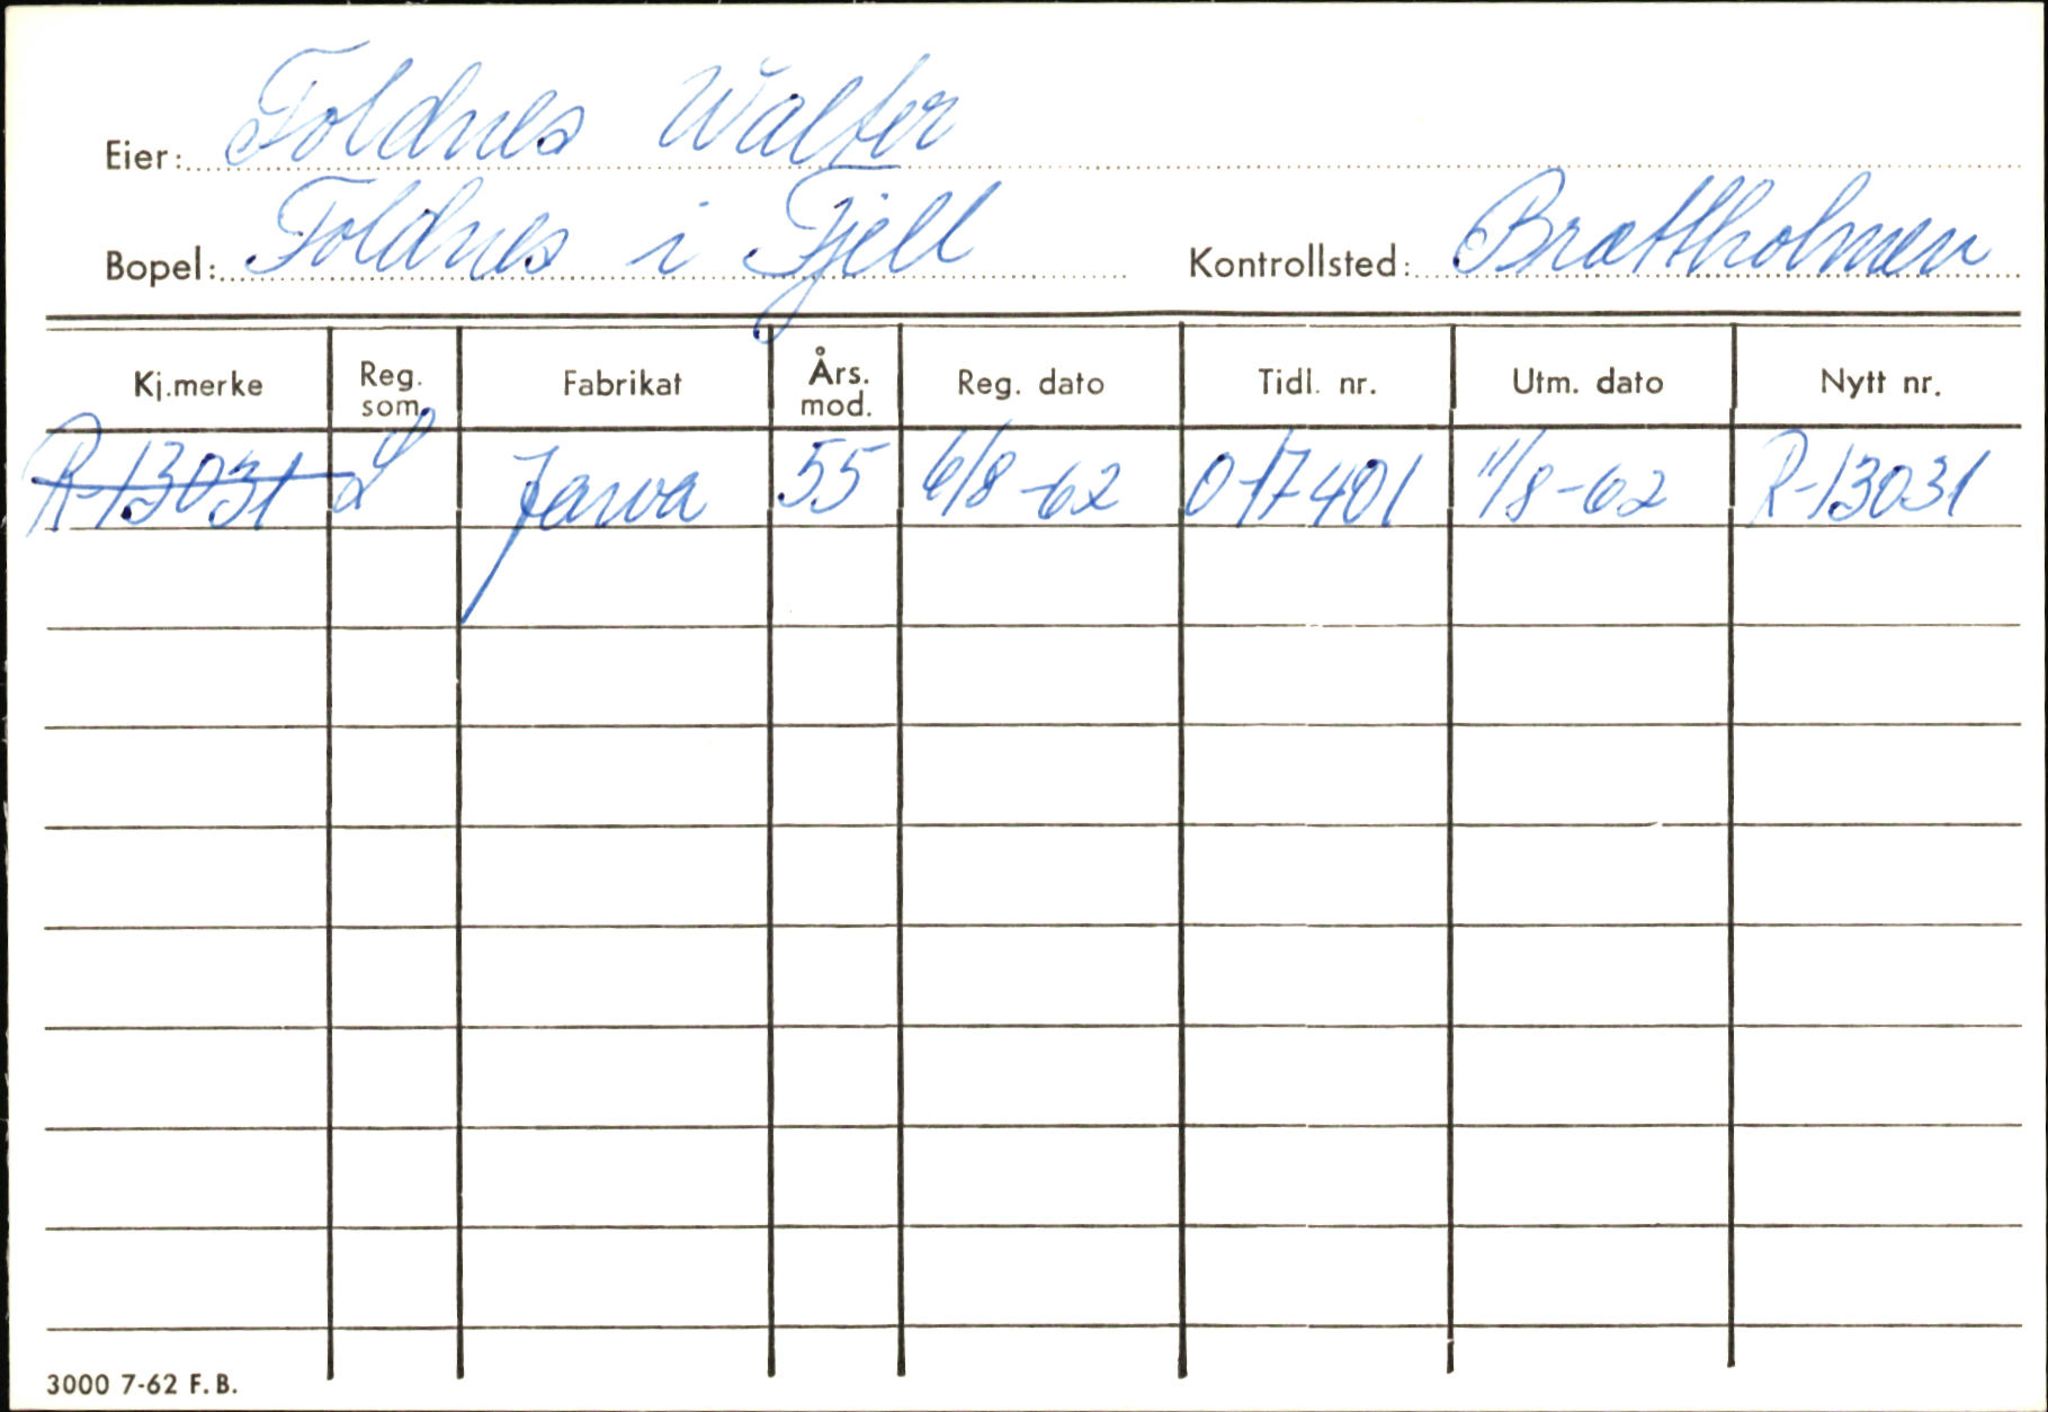 Eier: Foldnes Walter
Bopel: Foldnes i Fjell Kontrollsted: Brattholmen
Kj.merke Reg. som. Fabrikat Års. mod. Reg. dato Tidl. nr. Utm. dato Nytt nr.
R-13031 L Jawa 55 6/8-62 O-17401 11/8-62 R-13031
3000 7-62 F.B.